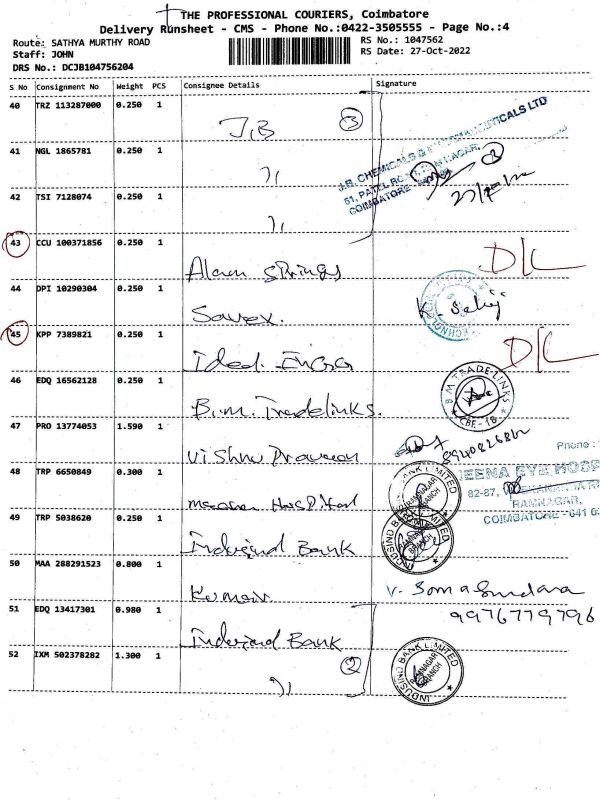 THE PROFESSIONAL COURIERS, Coimbatore
Delivery Runsheet - CMS - Phone No.:0422-3505555 - Page No.:4
Route: SATHYA MURTHY ROAD RS No.: 1047562
Staff: JOHN RS Date: 27-Oct-2022
DRS No.: DCJB104756204
S No Consignment No Weight PCS Consignee Details Signature
40 TRZ 113287000 0.250 1 J,B 3
J.B. CHEMICALS & PHARMACEUTICALS LTD
41 NGL 1865781 0.250 1 ,, 3
51, PATEL ROAD, RAM NAGAR,
COIMBATORE
42 TSI 7128074 0.250 1 ,,
43 CCU 100371856 0.250 1 Springs D/L
44 DPI 10290304 0.250 1 Savex.
45 KPP 7389821 0.250 1 Ideal D/L
46 EDQ 16562128 0.250 1 B.M. Tradelinks. B.M TRADE-LINKS CBE-18
47 PRO 13774053 1.590 1 Vishnu
Phone :
48 TRP 6650849 0.300 1 Hospital
EYE HOSP
82-87,
RAMNAGAR,
COIMBATORE - 641 0
INDUSIND BANK LIMITED RAMNAGAR BRANCH
49 TRP 5038620 0.250 1 Indusind Bank INDUSIND BANK LIMITED RAMNAGAR BRANCH
50 MAA 288291523 0.800 1 Kumar V. Somasundara
9976779796
51 EDQ 13417301 0.980 1 Indusind Bank
52 IXM 502378282 1.300 1 ,, 2 INDUSIND BANK LIMITED RAMNAGAR BRANCH